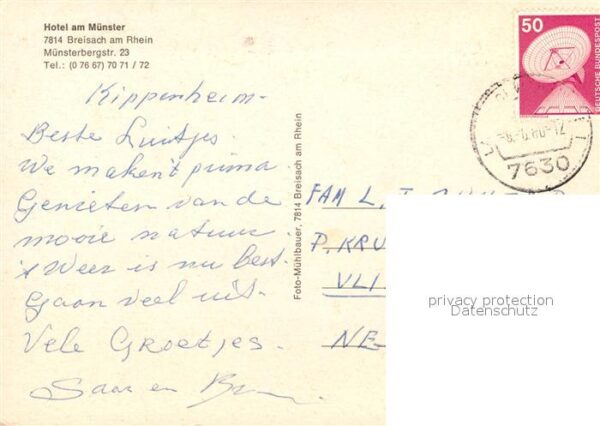 Hotel am Münster
7814 Breisach am Rhein
Münsterbergstr. 23
Tel.: (0 76 67) 70 71 / 72
Kippenheim-
Beste Luitjes.
We maken't prima.
Genieten van de
mooie natuur.
't Weer is nu best.
Gaan veel uit.
Vele Groetjes.
Saar en
Foto-Mühlbauer, 7814 Breisach am Rhein
50
DEUTSCHE BUNDESPOST
7630
FAM L.
P. KRU
VLI
NE-
privacy protection
Datenschutz